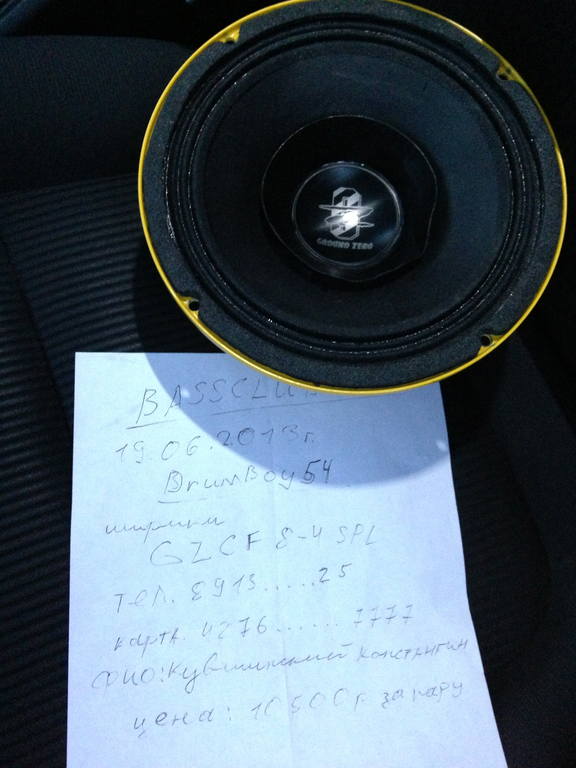 GROUND ZERO
BASSCLUB
19.06.2013г.
DrumBoy54
широкие
GZCF 8-4 SPL
тел. 8913.....25
карта. 4276......7777
ФИО: Константин
цена: 10500р за пару